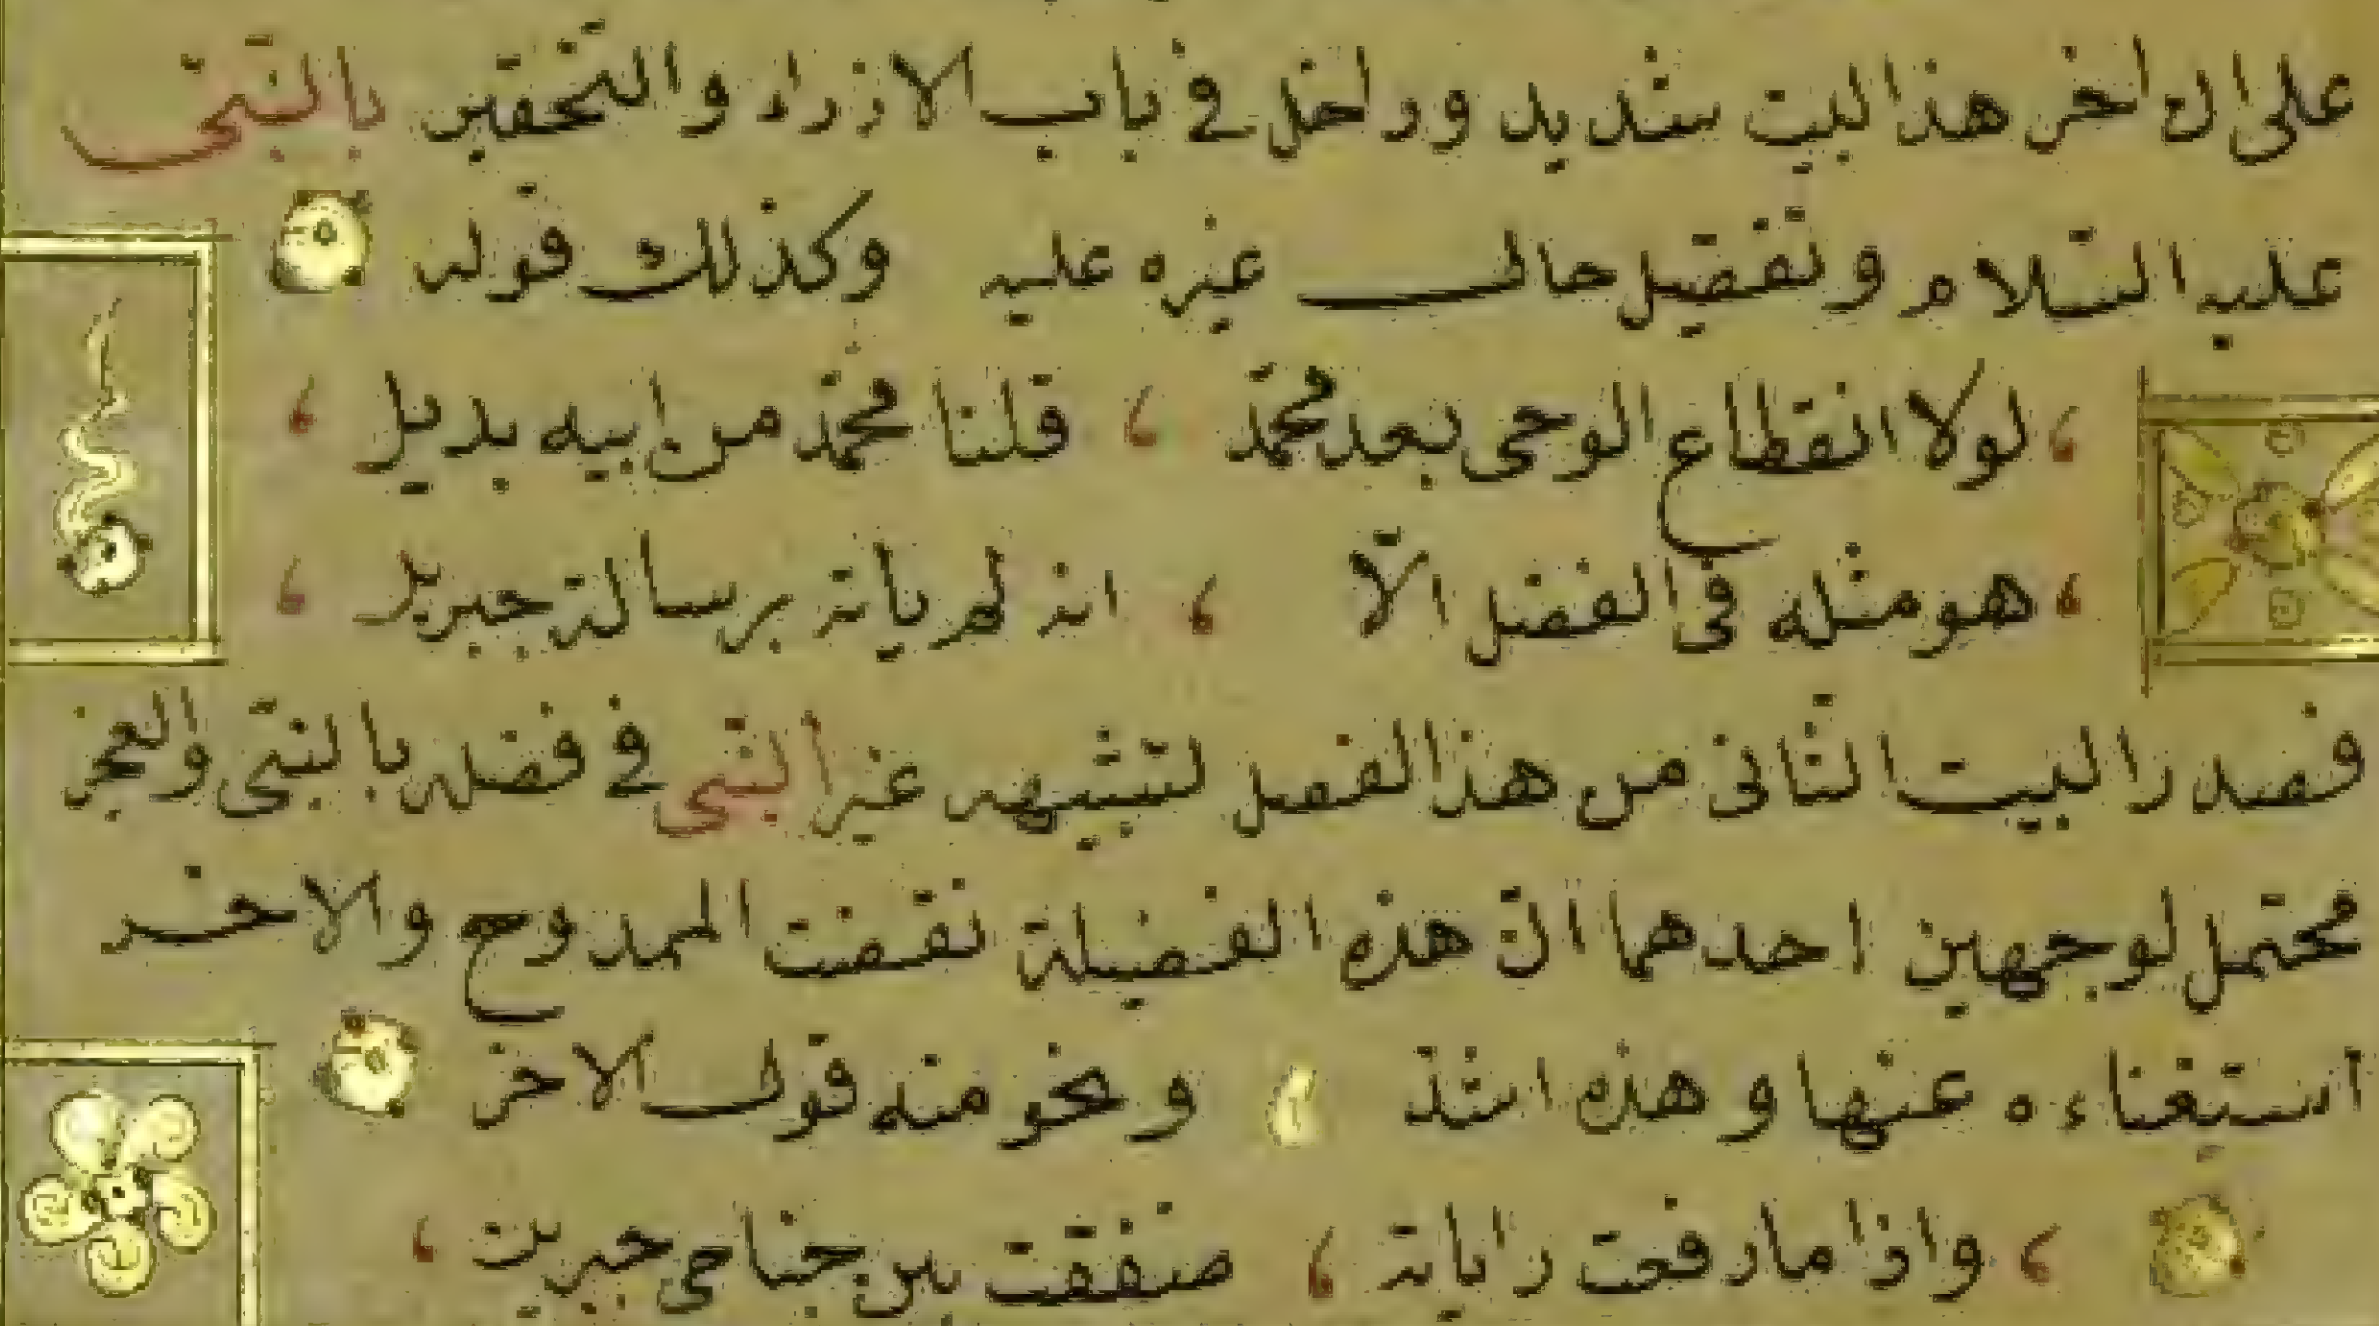 على ان اخر هذا البيت شديد وداخل في باب الازراء والتحقير بالنبي
عليه السلام وتفضيل حال غيره عليه وكذلك قوله
لولا انقطاع الوحي بعد محمد ، قلنا محمد من ابيه بديل ،
هو مثله في الفضل الّا ، انه لم ياته برسالة جبريل ،
فصدر البيت الثاني من هذا الفصل لتشبيهه غير النبي في فضله بالنبي والعجز
محتمل لوجهين احدهما انّ هذه الفضيلة نقصت الممدوح والاخر
استغناءه عنها وهذه اشدّ ، ونحو منه قول الاخر
، واذا ما رفعت راياته ، صفقت بين جناحي جبرين ،